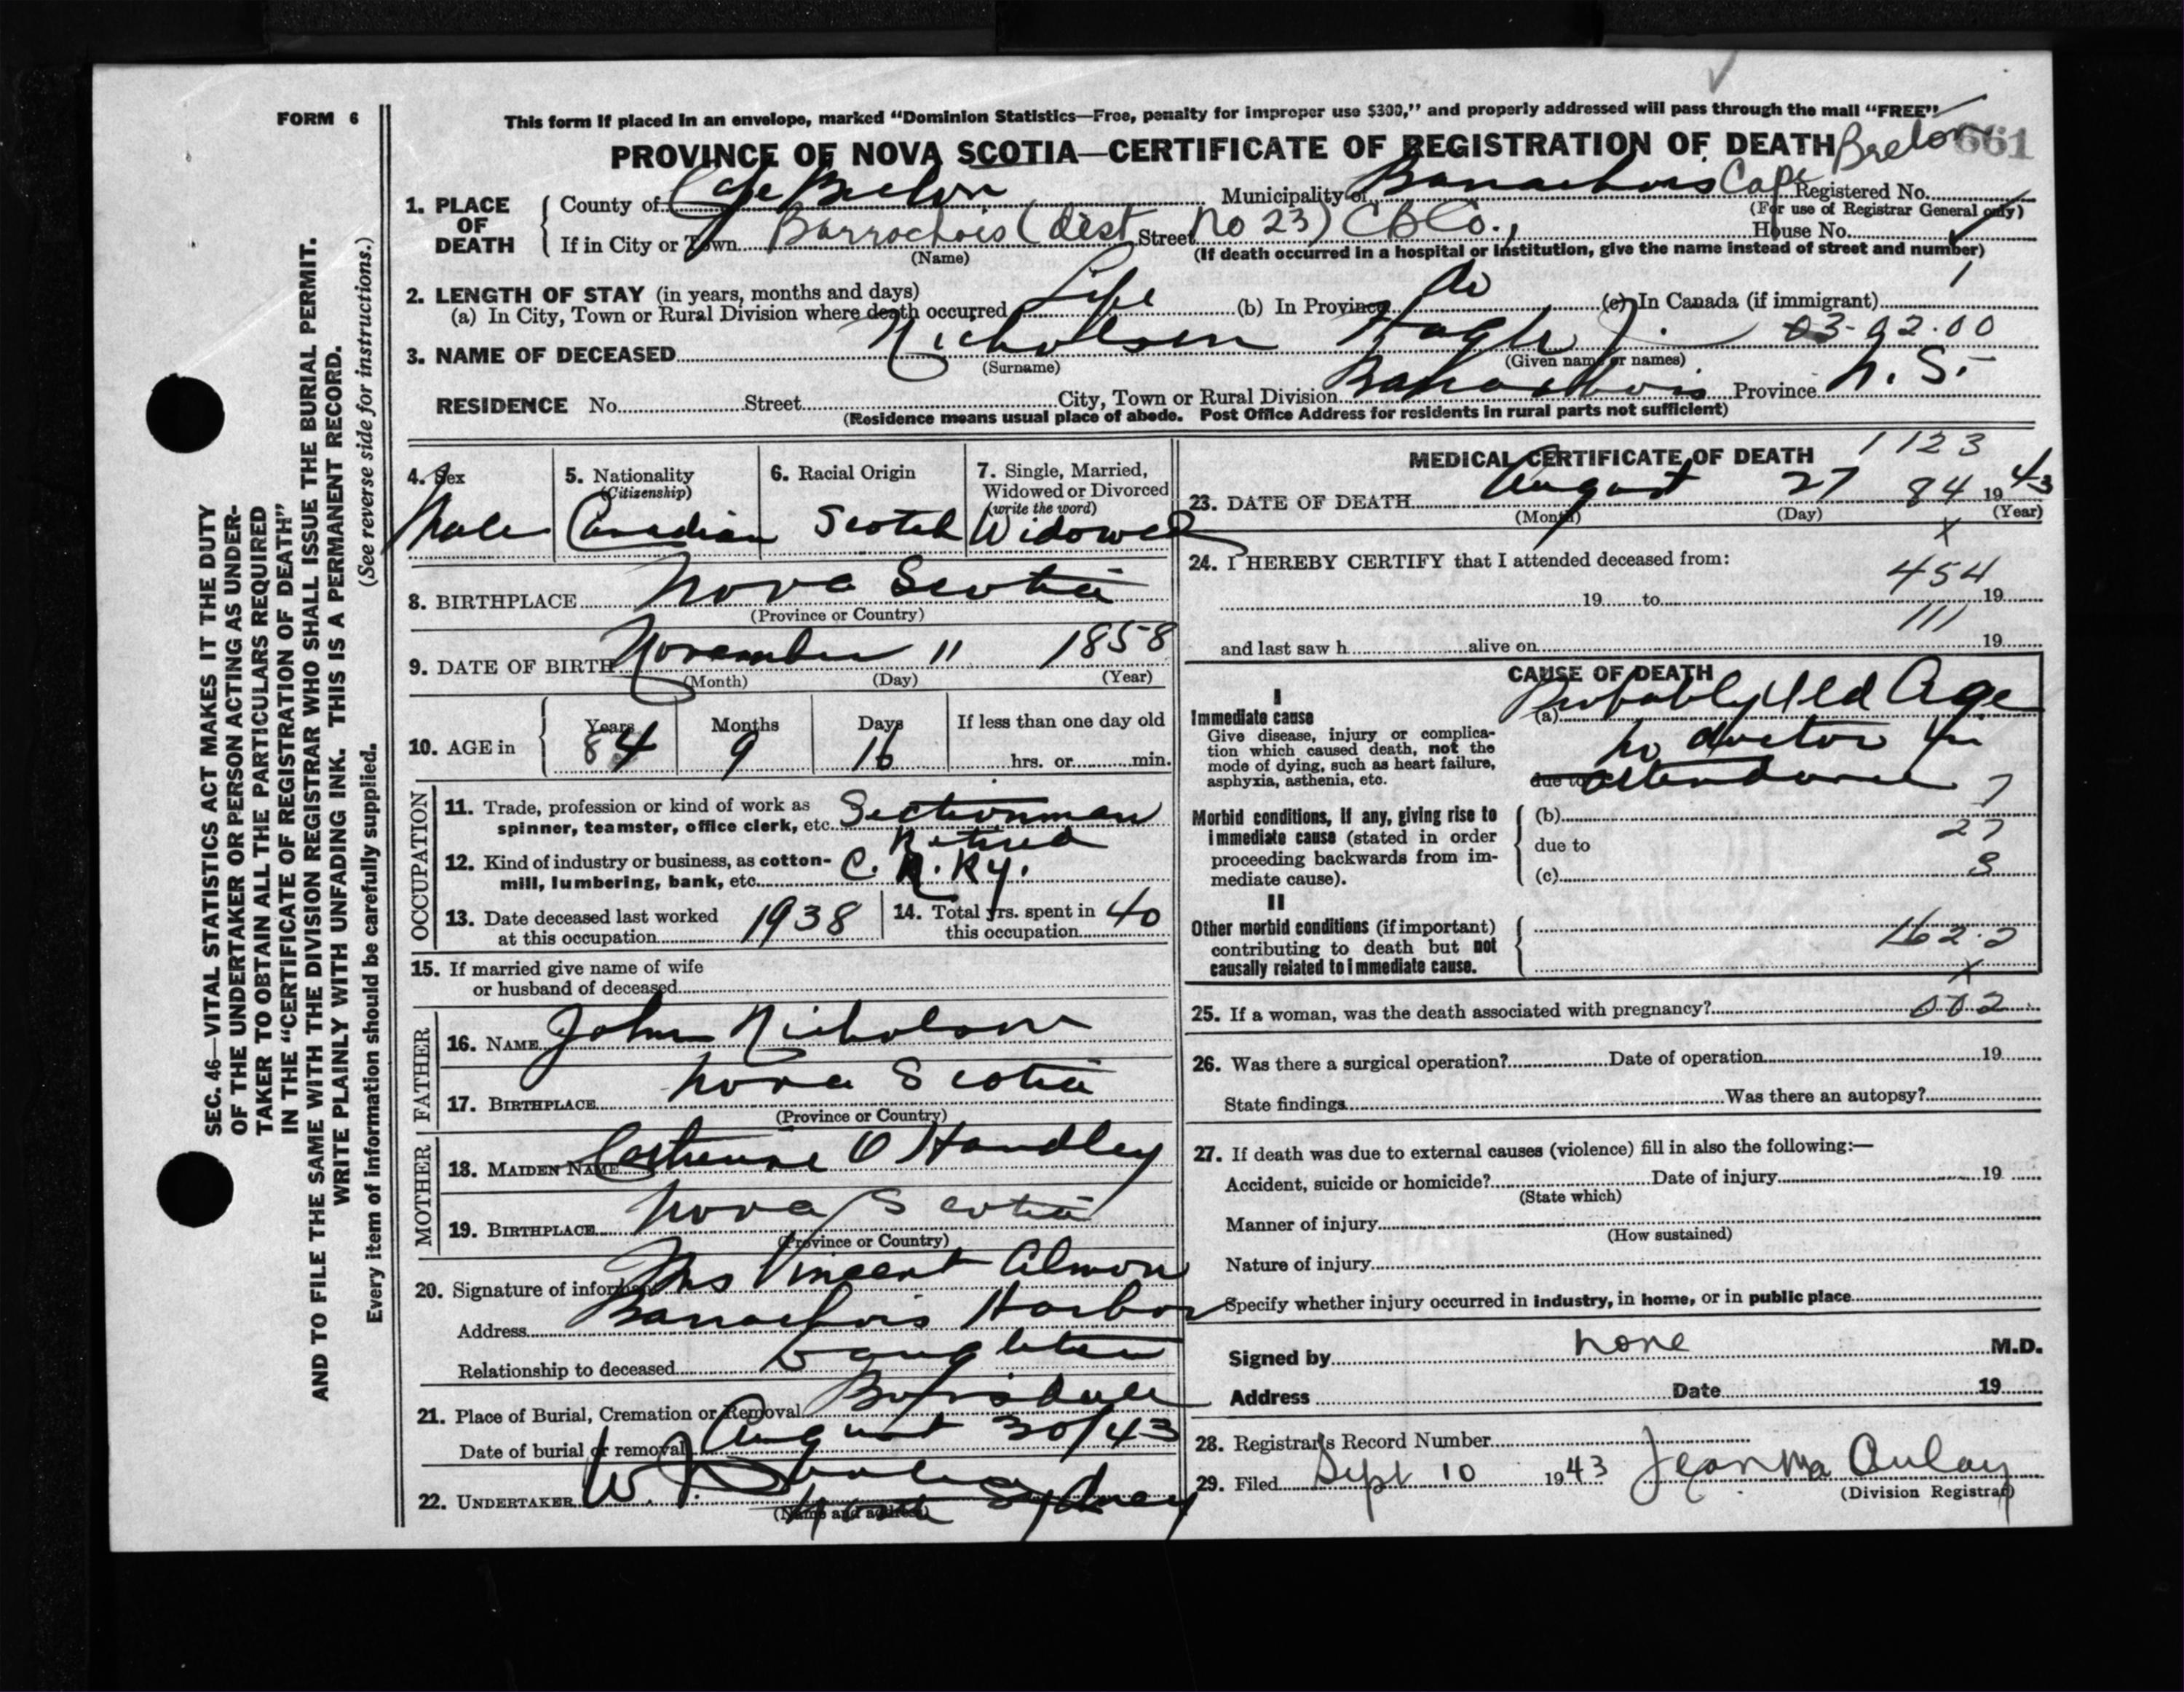 FORM 6
This form if placed in an envelope, marked "Dominion Statistics—Free, penalty for improper use $300," and properly addressed will pass through the mail "FREE"
PROVINCE OF NOVA SCOTIA—CERTIFICATE OF REGISTRATION OF DEATH
661
1. PLACE OF DEATH
County of Cape Breton Municipality of Barrachois Cape Breton Registered No.
(For use of Registrar General only)
If in City or Town Barrachois (dist Street No 23) CB Co., House No.
(Name) (If death occurred in a hospital or institution, give the name instead of street and number)
2. LENGTH OF STAY (in years, months and days)
(a) In City, Town or Rural Division where death occurred Life (b) In Province do (c) In Canada (if immigrant) 1
03-02.00
3. NAME OF DECEASED Nicholson
(Surname) (Given name or names)
RESIDENCE No. Street City, Town or Rural Division Barrachois Province N.S.
(Residence means usual place of abode. Post Office Address for residents in rural parts not sufficient)
4. Sex 5. Nationality (Citizenship) 6. Racial Origin 7. Single, Married, Widowed or Divorced (write the word)
Male Canadian Scotch Widowed
8. BIRTHPLACE Nova Scotia
(Province or Country)
9. DATE OF BIRTH November 11 1858
(Month) (Day) (Year)
10. AGE in Years Months Days If less than one day old
84 9 16 hrs. or min.
OCCUPATION
11. Trade, profession or kind of work as spinner, teamster, office clerk, etc. Sectionman
Retired
12. Kind of industry or business, as cotton-mill, lumbering, bank, etc. C. N. Ry.
13. Date deceased last worked at this occupation 1938 14. Total yrs. spent in this occupation 40
15. If married give name of wife
or husband of deceased
FATHER
16. NAME John Nicholson
17. BIRTHPLACE Nova Scotia
(Province or Country)
MOTHER
18. MAIDEN NAME Catherine O Handley
19. BIRTHPLACE Nova Scotia
(Province or Country)
20. Signature of informant Mrs Vincent Almon
Address Barrachois Harbor
Relationship to deceased Daughter
21. Place of Burial, Cremation or Removal Boisdale
Date of burial or removal August 30/43
22. UNDERTAKER W. J.
North Sydney
(Name and address)
MEDICAL CERTIFICATE OF DEATH
1123
23. DATE OF DEATH August 27 84 1943
(Month) (Day) (Year)
x
24. I HEREBY CERTIFY that I attended deceased from:
454
19 to 19
111
and last saw h alive on 19
CAUSE OF DEATH
I
Immediate cause
Give disease, injury or complication which caused death, not the mode of dying, such as heart failure, asphyxia, asthenia, etc.
(a) Probably Old Age
no doctor in
due to attendance
7
Morbid conditions, if any, giving rise to immediate cause (stated in order proceeding backwards from immediate cause).
(b)
27
due to
(c) 8
II
Other morbid conditions (if important) contributing to death but not causally related to immediate cause.
162.2
x
25. If a woman, was the death associated with pregnancy? 002
26. Was there a surgical operation? Date of operation 19
State findings Was there an autopsy?
27. If death was due to external causes (violence) fill in also the following:—
Accident, suicide or homicide? Date of injury 19
(State which)
Manner of injury
(How sustained)
Nature of injury
Specify whether injury occurred in industry, in home, or in public place
Signed by none M.D.
Address Date 19
28. Registrar's Record Number
29. Filed Sept 10 1943 Jean MacAulay
(Division Registrar)
SEC. 46—VITAL STATISTICS ACT MAKES IT THE DUTY
OF THE UNDERTAKER OR PERSON ACTING AS UNDER-
TAKER TO OBTAIN ALL THE PARTICULARS REQUIRED
IN THE "CERTIFICATE OF REGISTRATION OF DEATH"
AND TO FILE THE SAME WITH THE DIVISION REGISTRAR WHO SHALL ISSUE THE BURIAL PERMIT.
WRITE PLAINLY WITH UNFADING INK. THIS IS A PERMANENT RECORD.
Every item of information should be carefully supplied. (See reverse side for instructions.)